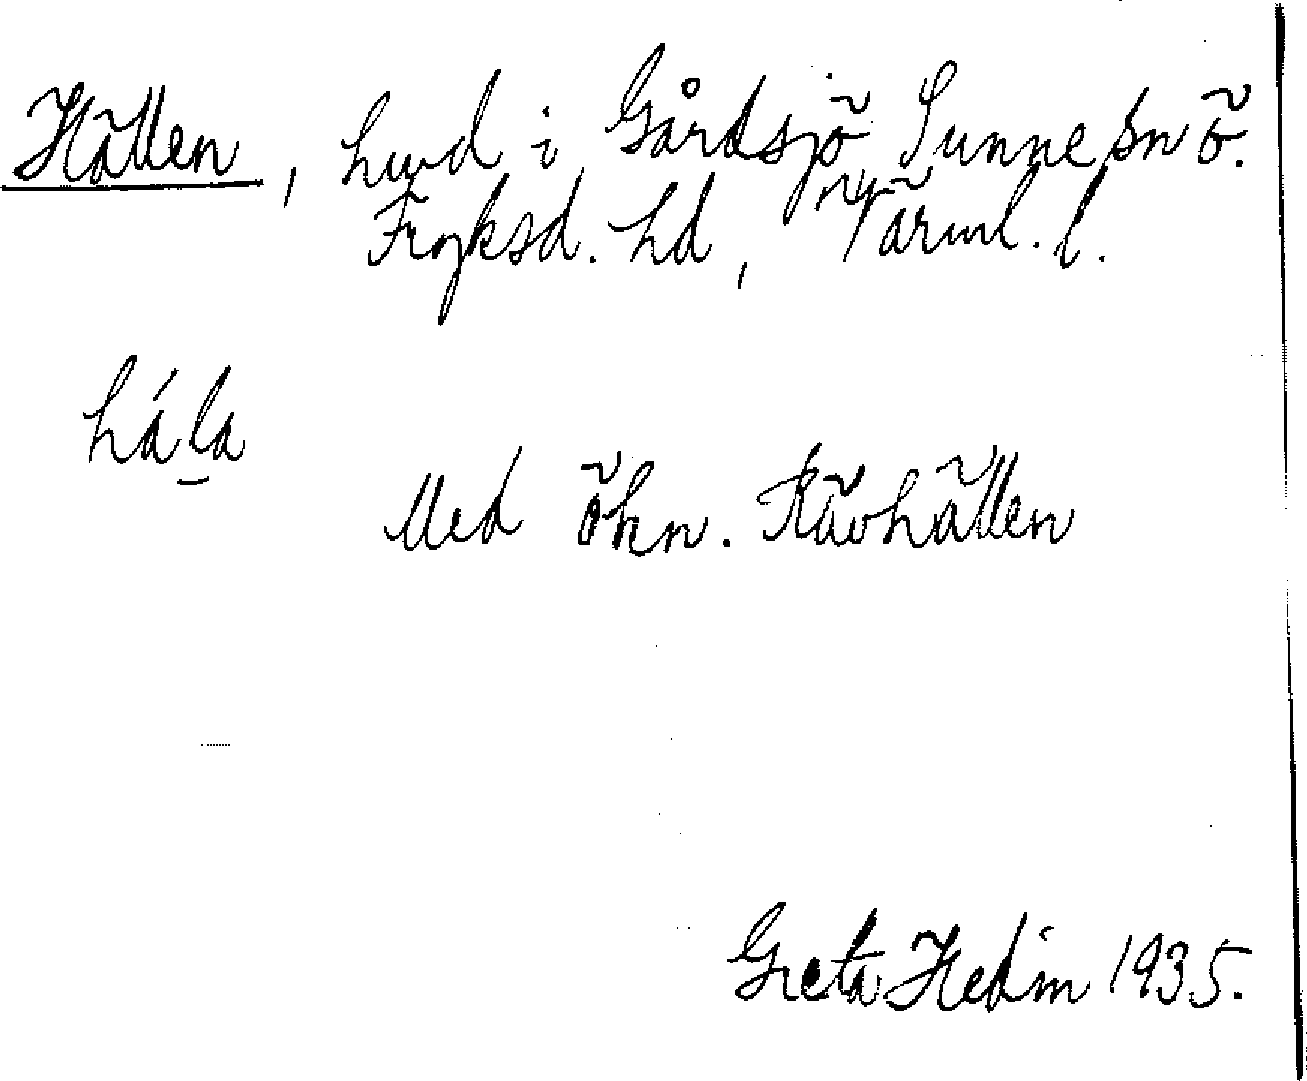 Hällen, hmd i Gårdsjö, Sunne sn ö.
Fryksd. hd, Värml. l.
hála
Med ökn. Rävhällen
Greta Hedin 1935.